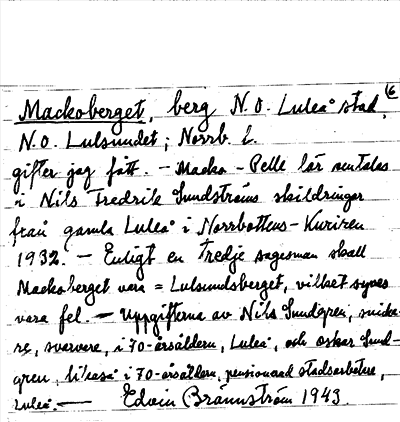 6
Mackoberget, berg N.O. Luleå stad,
N.O. Lulsundet; Norrb. l.
gifter jag fått. – Macko-Pelle lär omtalas
i Nils Fredrik Sundströms skildringar
från gamla Luleå i Norrbottens-Kuriren
1932. – Enligt en tredje sagesman skall
Mackoberget vara = Lulsundsberget, vilket synes
vara fel. – Uppgifterna av Nils Sundgren, snicka-
re, svarvare, i 70-årsåldern, Luleå, och Oskar Sund-
gren, likaså i 70-årsåldern, pensionerad stadsarbetare,
Luleå. — Edvin Brännström 1943.